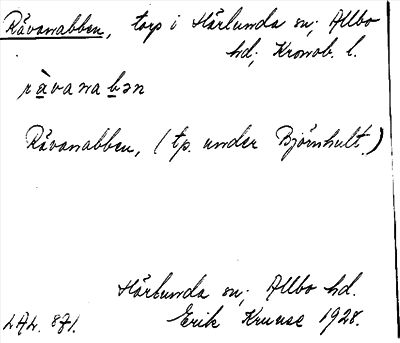 Råvanabben, torp i Härlunda sn; Allbo
hd; Kronob. l.
ràvanabən
Råvanabben, (tp. under Björnhult.)
Härlunda sn; Allbo hd.
LAL. 871. Erik Kruuse 1928.